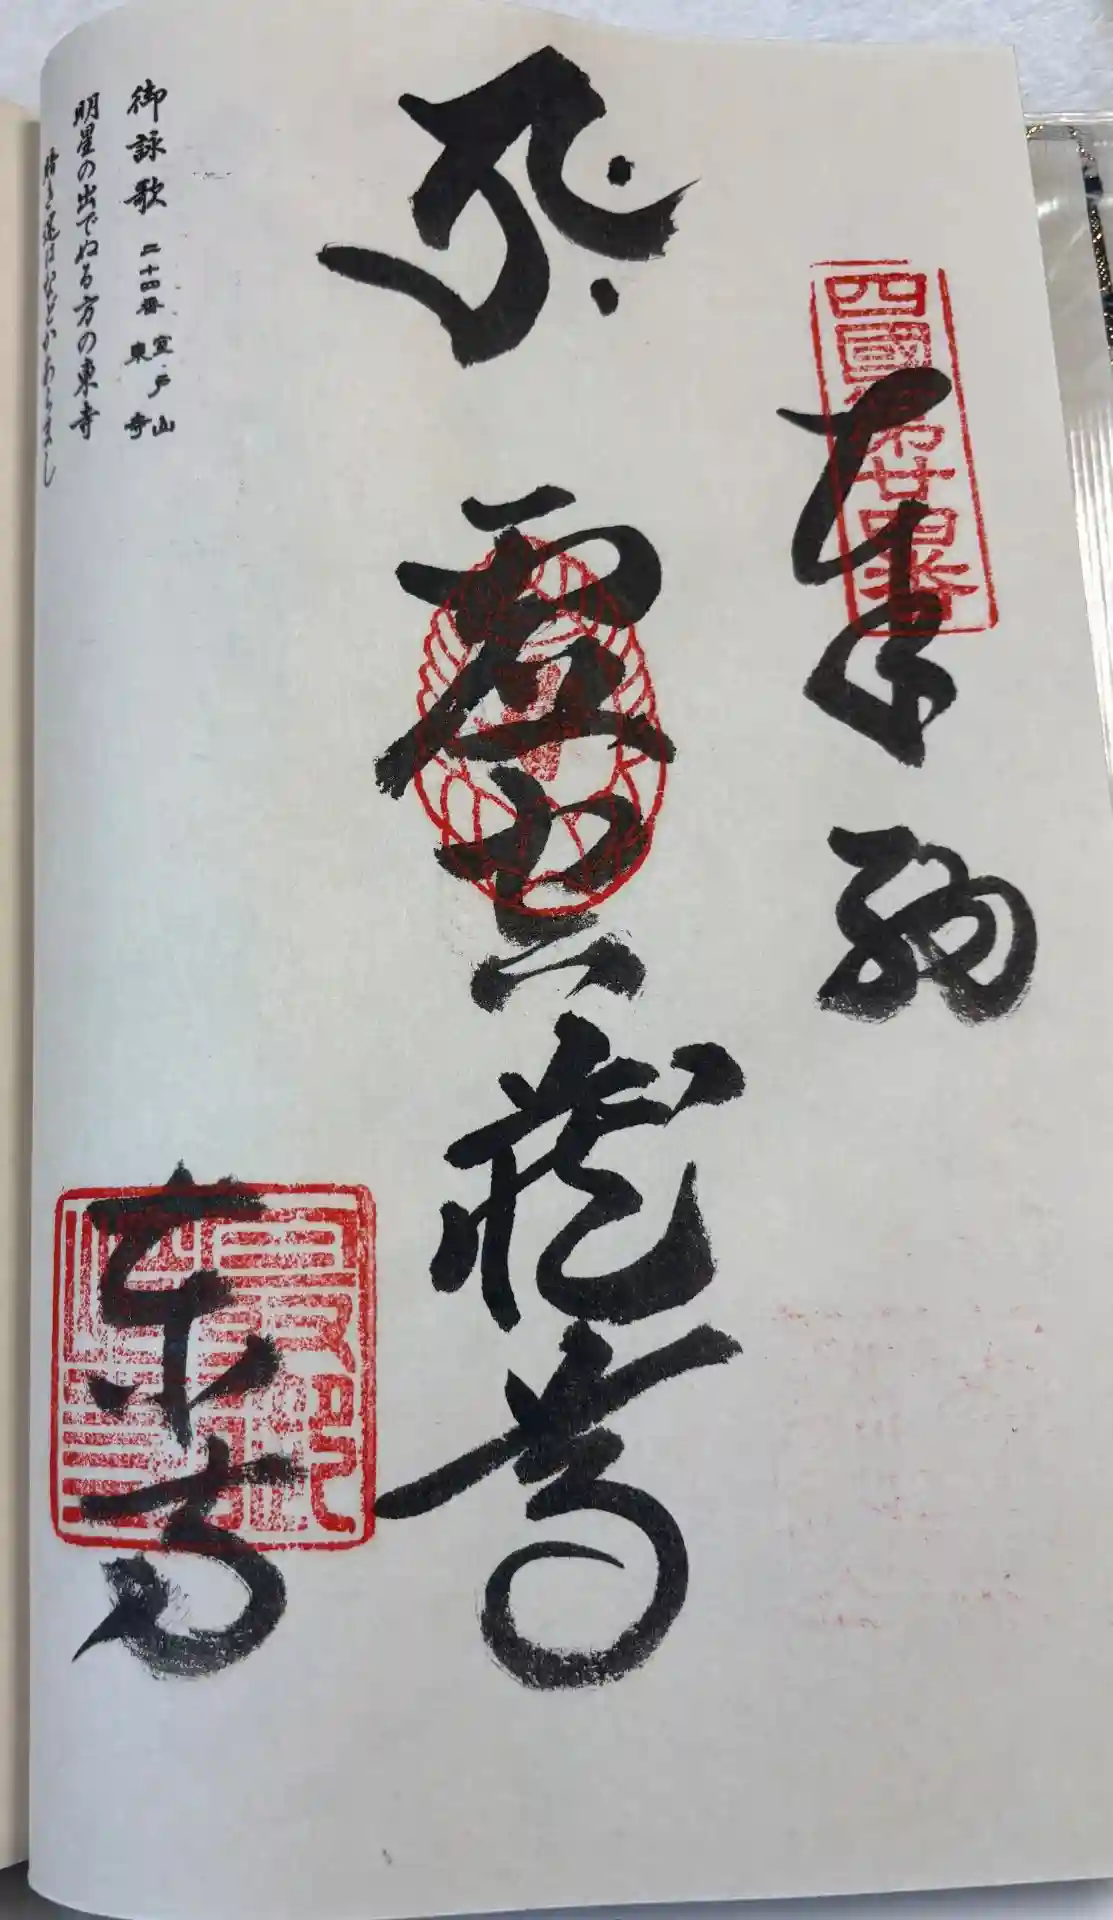 四國第廿四番
奉納
虚空蔵尊
東寺
御詠歌 二十四番 室戸山 東寺
明星の出でぬる方の東寺
暗き迷はなどかあらまし